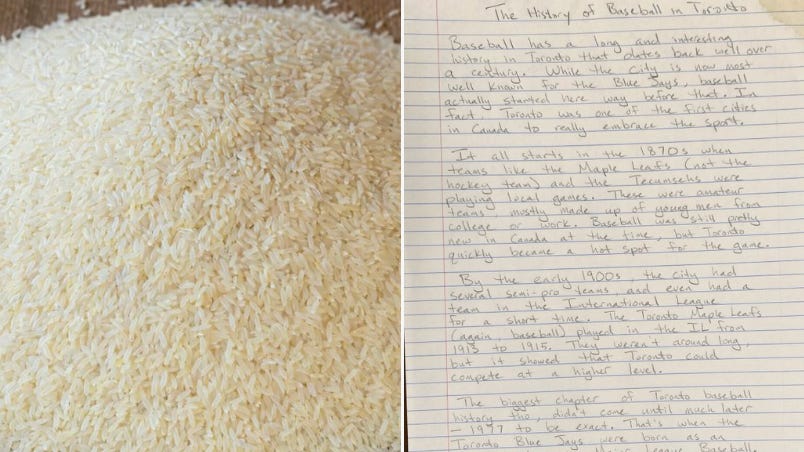 The History of Baseball in Toronto
Baseball has a long and interesting
history in Toronto that dates back well over
a century. While the city is now most
well known for the Blue Jays, baseball
actually started here way before that. In
fact, Toronto was one of the first cities
in Canada to really embrace the sport.
It all starts in the 1870s when
teams like the Maple Leafs (not the
hockey team) and the Tecumsehs were
playing local games. These were amateur
teams mostly made up of young men from
college or work. Baseball was still pretty
new in Canada at the time, but Toronto
quickly became a hot spot for the game.
By the early 1900s, the city had
several semi-pro teams, and even had a
team in the International League
for a short time. The Toronto Maple Leafs
(again, baseball) played in the IL from
1913 to 1915. They weren't around long,
but it showed that Toronto could
compete at a higher level.
The biggest chapter of Toronto baseball
history tho, didn't come until much later
– 1977 to be exact. That's when the
Toronto Blue Jays were born as an
Major League Baseball.